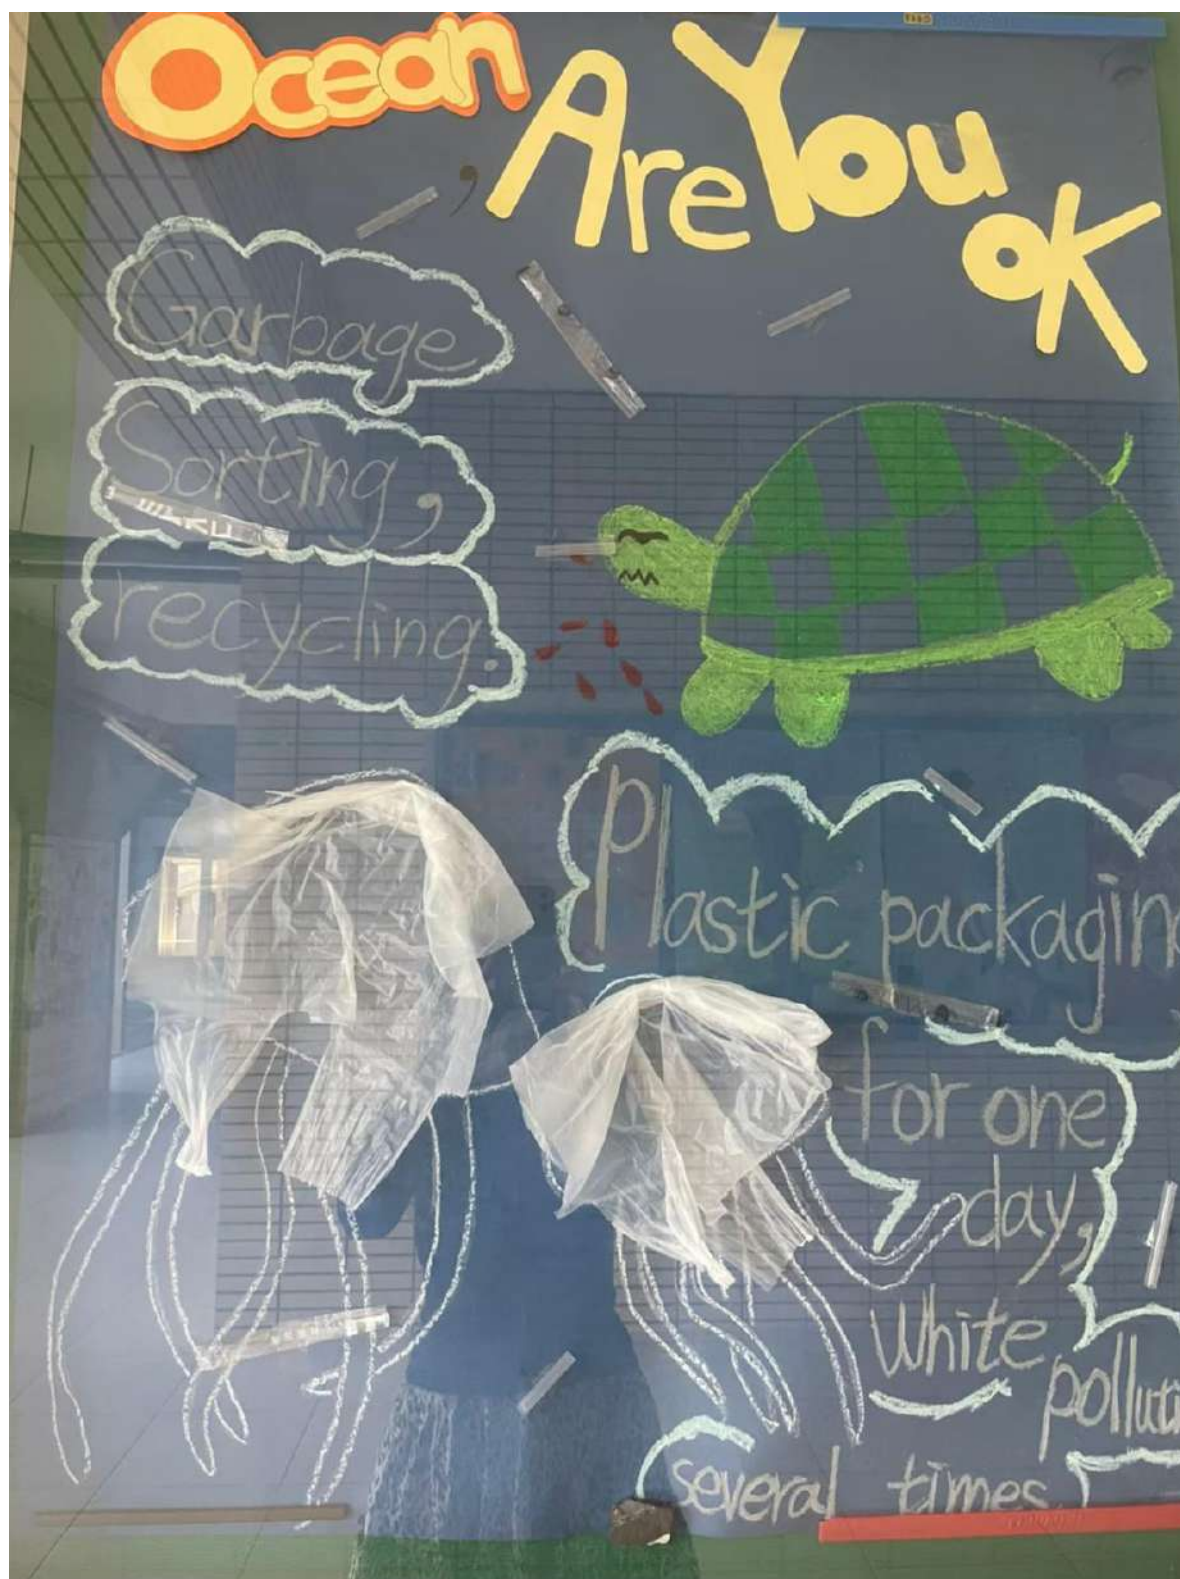 Ocean
,
Are You
OK
Garbage
Sorting,
recycling.
Plastic packaging
for one
day,
White
polluti
several times.